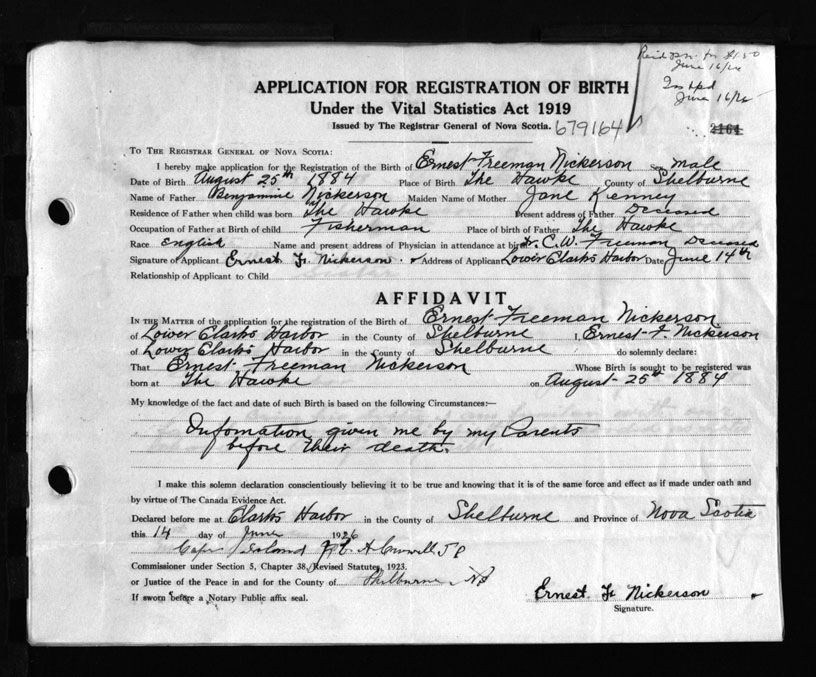 June 16/26
June 16/26
APPLICATION FOR REGISTRATION OF BIRTH
Under the Vital Statistics Act 1919
Issued by The Registrar General of Nova Scotia. 679164
2164
TO THE REGISTRAR GENERAL OF NOVA SCOTIA:
I hereby make application for the Registration of the Birth of Ernest Freeman Nickerson Sex male
Date of Birth August 25th 1884 Place of Birth The Hawke County of Shelburne
Name of Father Benjamine Nickerson Maiden Name of Mother Jane Kenney
Residence of Father when child was born The Hawke Present address of Father Deceased
Occupation of Father at Birth of child Fisherman Place of birth of Father The Hawke
Race English Name and present address of Physician in attendance at birth Dr. C.W. Freeman Deceased
Signature of Applicant Ernest F. Nickerson Address of Applicant Lower Clarks Harbor Date June 14th
Relationship of Applicant to Child
AFFIDAVIT
IN THE MATTER of the application for the registration of the Birth of Ernest Freeman Nickerson
of Lower Clarks Harbor in the County of Shelburne I, Ernest F. Nickerson
of Lower Clarks Harbor in the County of Shelburne do solemnly declare:
That Ernest Freeman Nickerson Whose Birth is sought to be registered was
born at The Hawke on August 25th 1884
My knowledge of the fact and date of such Birth is based on the following Circumstances:—
Infomation given me by my Parents
before their death.
I make this solemn declaration conscientiously believing it to be true and knowing that it is of the same force and effect as if made under oath and
by virtue of The Canada Evidence Act.
Declared before me at Clarks Harbor in the County of Shelburne and Province of Nova Scotia
this 14 day of June 1926
Commissioner under Section 5, Chapter 38, Revised Statutes, 1923.
or Justice of the Peace in and for the County of Shelburne NS
If sworn before a Notary Public affix seal.
Ernest F. Nickerson
Signature.